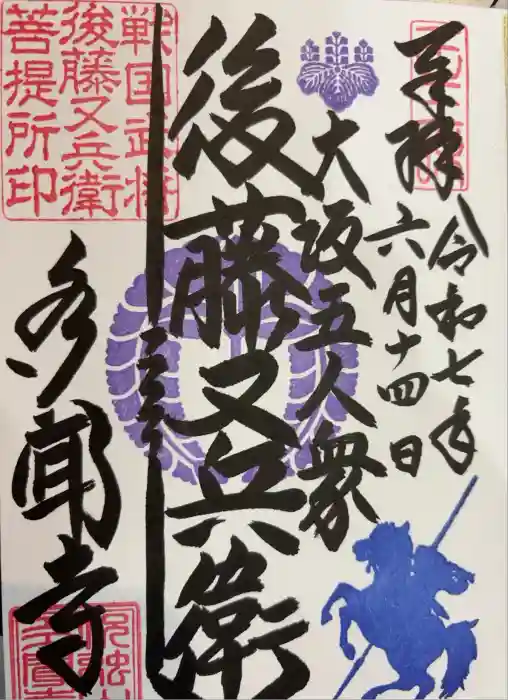 奉拝
令和七年
六月十四日
大坂五人衆
後藤又兵衛
戦国武将
後藤又兵衛
菩提所印
多聞寺